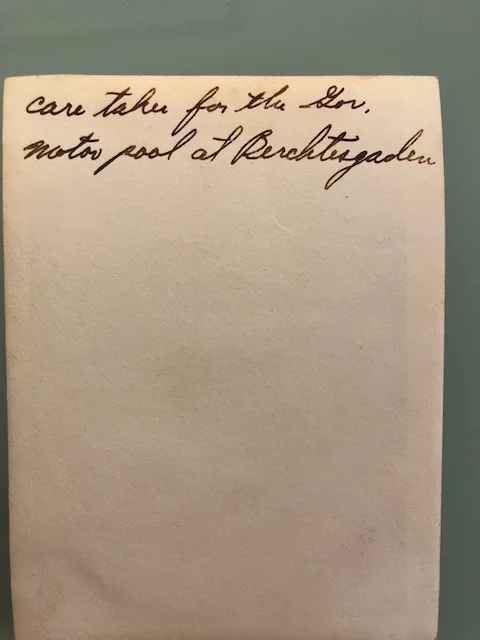 care taker for the Gov.
motor pool at Berchtesgaden